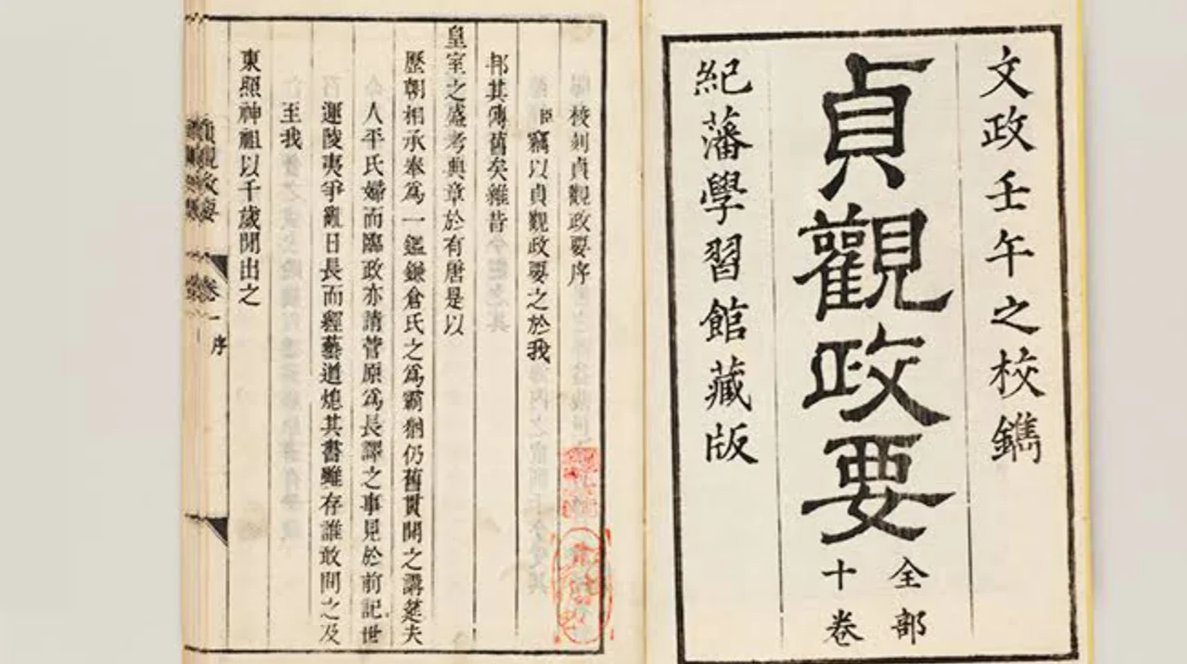 文政壬午之校鐫
貞觀政要
全部
十卷
紀藩學習館藏版
校刻貞觀政要序
臣竊以貞觀政要之於我
邦其傳舊矣雖昔
皇室之盛考典章於有唐是以
歷朝相承奉爲一鑑鎌倉氏之爲霸猶仍舊貫開之講筵夫
人平氏婦而臨政亦請菅原爲長譯之事見於前記世
運陵夷爭亂日長而經藝道熄其書雖存誰敢問之及
至我
東照神祖以千歲開出之
貞觀政要
卷一
序